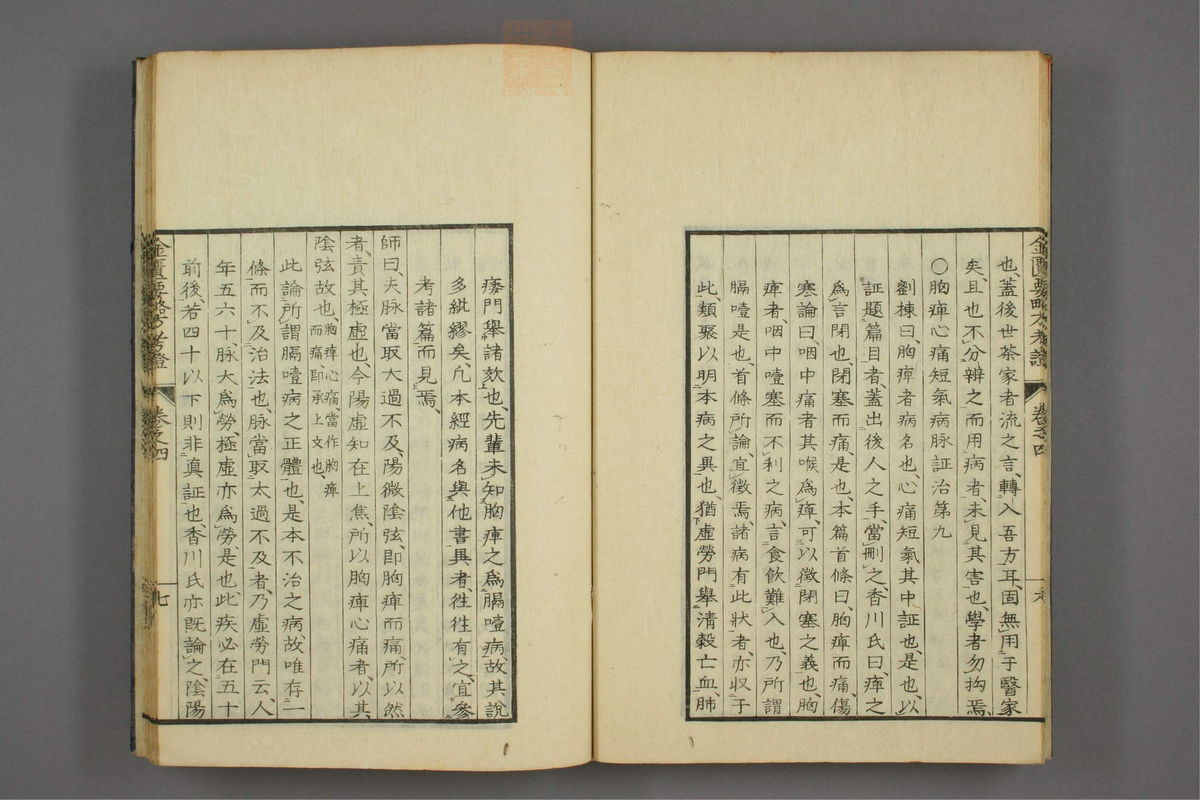 也、蓋後世茶家者流之言、轉入吾方耳、固無用于醫家
矣、且也不分辨之而用病者、未見其害也、學者勿拘焉、
〇胸痺心痛短氣病脉証治第九
劉棟曰、胸痺者病名也、心痛短氣其中証也、是也、以
証題篇目者、蓋出後人之手、當刪之、香川氏曰、痺之
爲言閉也、閉塞而痛、是也、本篇首條曰、胸痺而痛、傷
寒論曰、咽中痛者其喉爲痺、可以徴閉塞之義也、胸
痺者、咽中噎塞而不利之病、言食飲難入也、乃所謂
膈噎是也、首條所論、宜徴焉、諸病有此狀者、亦収于
此、類聚以明本病之異也、猶虛勞門舉清穀亡血、肺
痿門舉諸欬也、先輩未知胸痺之爲膈噎病、故其說
多紕繆矣、凡本經病名與他書異者、徃徃有之、宜參
考諸篇而見焉、
師曰、夫脉當取大過不及、陽微陰弦、即胸痺而痛所以然
者、責其極虛也、今陽虛知在上焦、所以胸痺心痛者、以其
陰弦故也、胸痺心痛、當作胸痺而痛、即承上文也
此論所謂膈噎病之正體也、是本不治之病、故唯存一
條而不及治法也、脉當取太過不及者、乃虛勞門云、人
年五六十、脉大爲勞、極虛亦爲勞、是也、此疾必在五十
前後、若四十以下則非真証也、香川氏亦既論之、陰陽
金匱要略方考證
卷之四
金匱要略方考證
卷之四